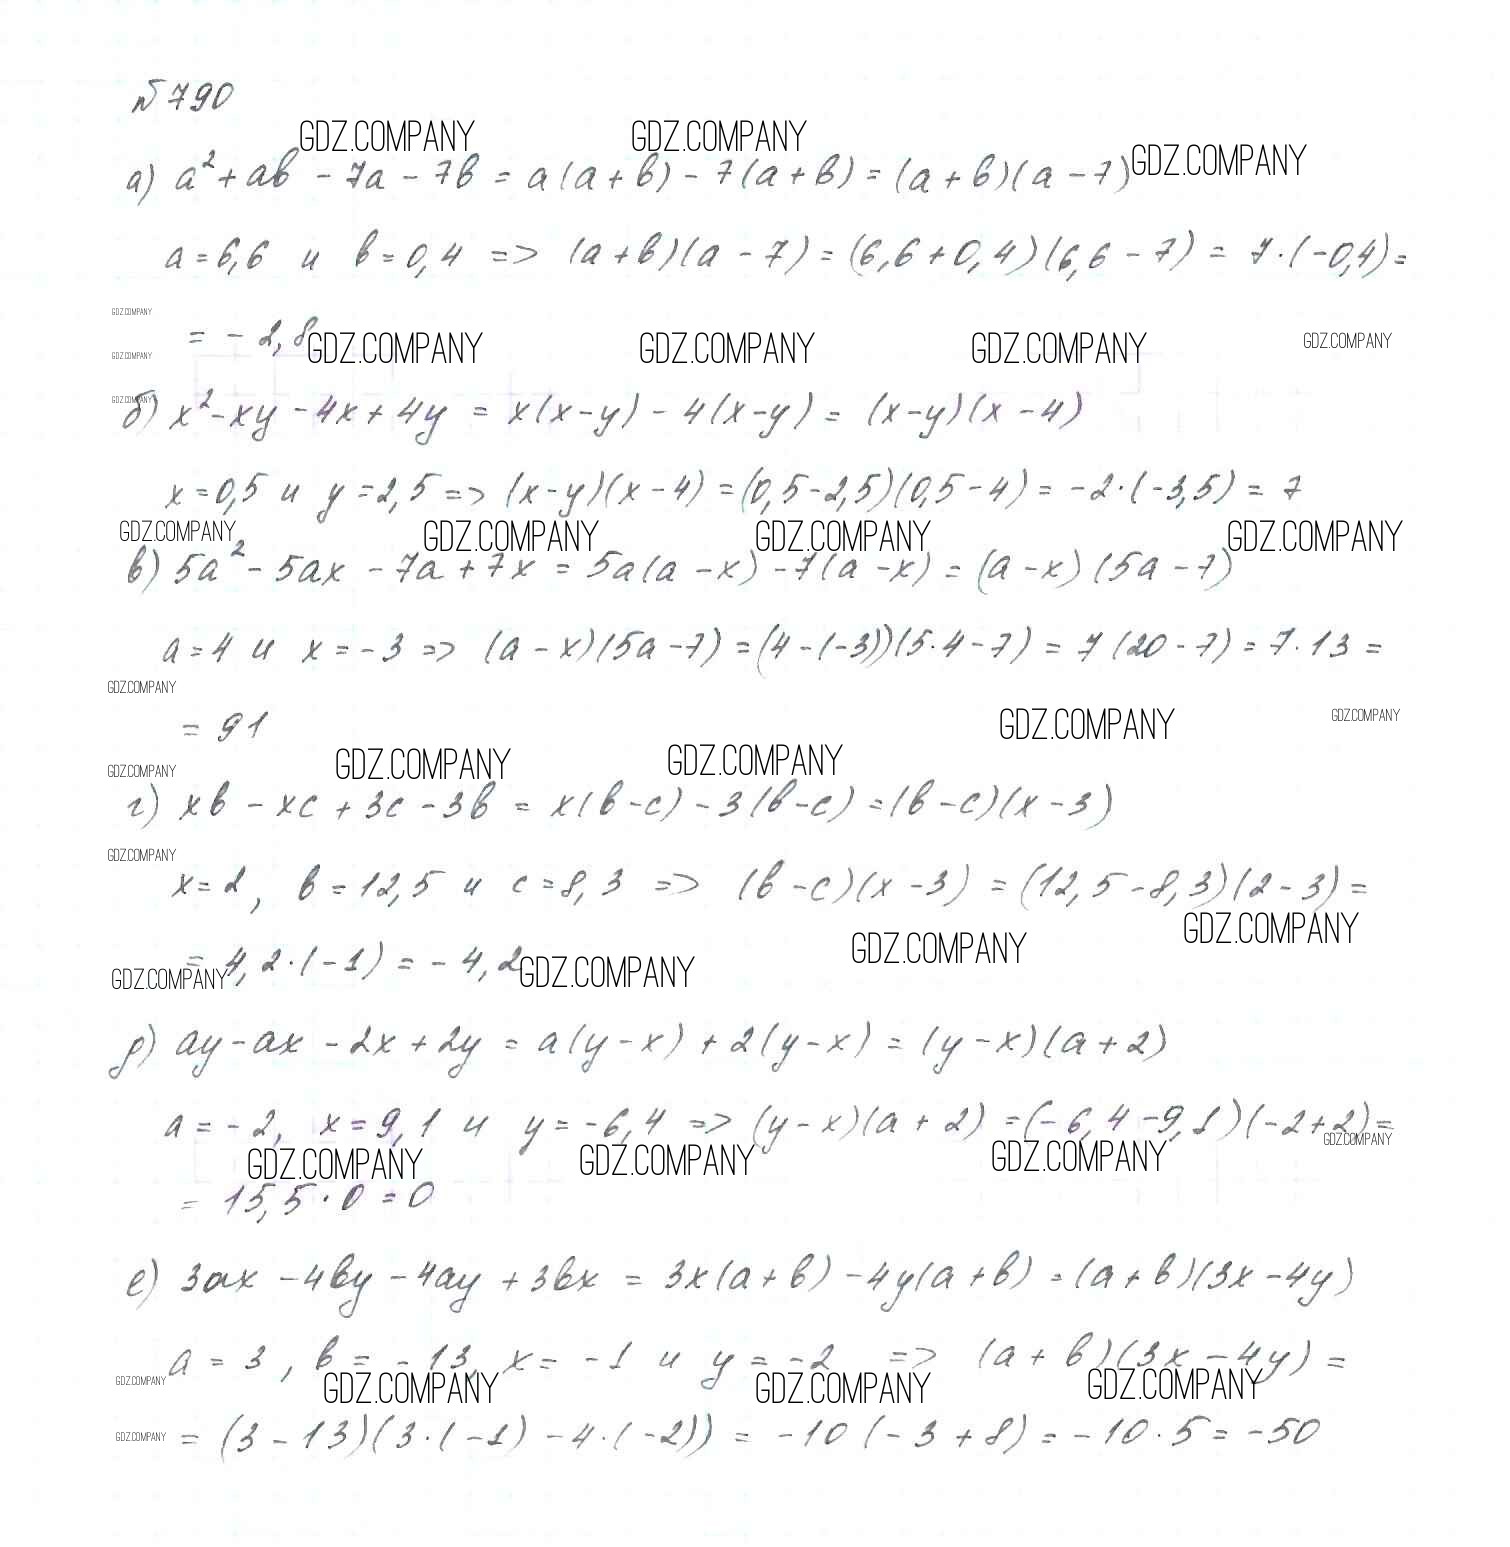 № 790
GDZ.COMPANY GDZ.COMPANY GDZ.COMPANY
а) a² + ab - 7a - 7b = a(a + b) - 7(a + b) = (a + b)(a - 7)
a = 6,6 и b = 0,4 => (a + b)(a - 7) = (6,6 + 0,4)(6,6 - 7) = 7·(-0,4) =
GDZ.COMPANY
= - 2,8
GDZ.COMPANY GDZ.COMPANY GDZ.COMPANY GDZ.COMPANY
GDZ.COMPANY
GDZ.COMPANY
б) x² - xy - 4x + 4y = x(x - y) - 4(x - y) = (x - y)(x - 4)
x = 0,5 и y = 2,5 => (x - y)(x - 4) = (0,5 - 2,5)(0,5 - 4) = -2·(-3,5) = 7
GDZ.COMPANY GDZ.COMPANY GDZ.COMPANY GDZ.COMPANY
в) 5a² - 5ax - 7a + 7x = 5a(a - x) - 7(a - x) = (a - x)(5a - 7)
a = 4 и x = - 3 => (a - x)(5a - 7) = (4 - (-3))(5·4 - 7) = 7(20 - 7) = 7·13 =
GDZ.COMPANY
= 91
GDZ.COMPANY GDZ.COMPANY
GDZ.COMPANY GDZ.COMPANY GDZ.COMPANY
г) xb - xc + 3c - 3b = x(b - c) - 3(b - c) = (b - c)(x - 3)
GDZ.COMPANY
x = 2, b = 12,5 и c = 8,3 => (b - c)(x - 3) = (12,5 - 8,3)(2 - 3) =
GDZ.COMPANY GDZ.COMPANY
= 4,2·(-1) = - 4,2
GDZ.COMPANY GDZ.COMPANY
д) ay - ax - 2x + 2y = a(y - x) + 2(y - x) = (y - x)(a + 2)
a = - 2, x = 9,1 и y = -6,4 => (y - x)(a + 2) = (-6,4 - 9,1)(-2 + 2) =
GDZ.COMPANY GDZ.COMPANY GDZ.COMPANY GDZ.COMPANY
= 15,5 · 0 = 0
е) 3ax - 4by - 4ay + 3bx = 3x(a + b) - 4y(a + b) = (a + b)(3x - 4y)
a = 3, b = - 13, x = - 1 и y = -2 => (a + b)(3x - 4y) =
GDZ.COMPANY GDZ.COMPANY GDZ.COMPANY GDZ.COMPANY
GDZ.COMPANY
= (3 - 13)(3·(-1) - 4·(-2)) = -10(-3 + 8) = -10·5 = -50